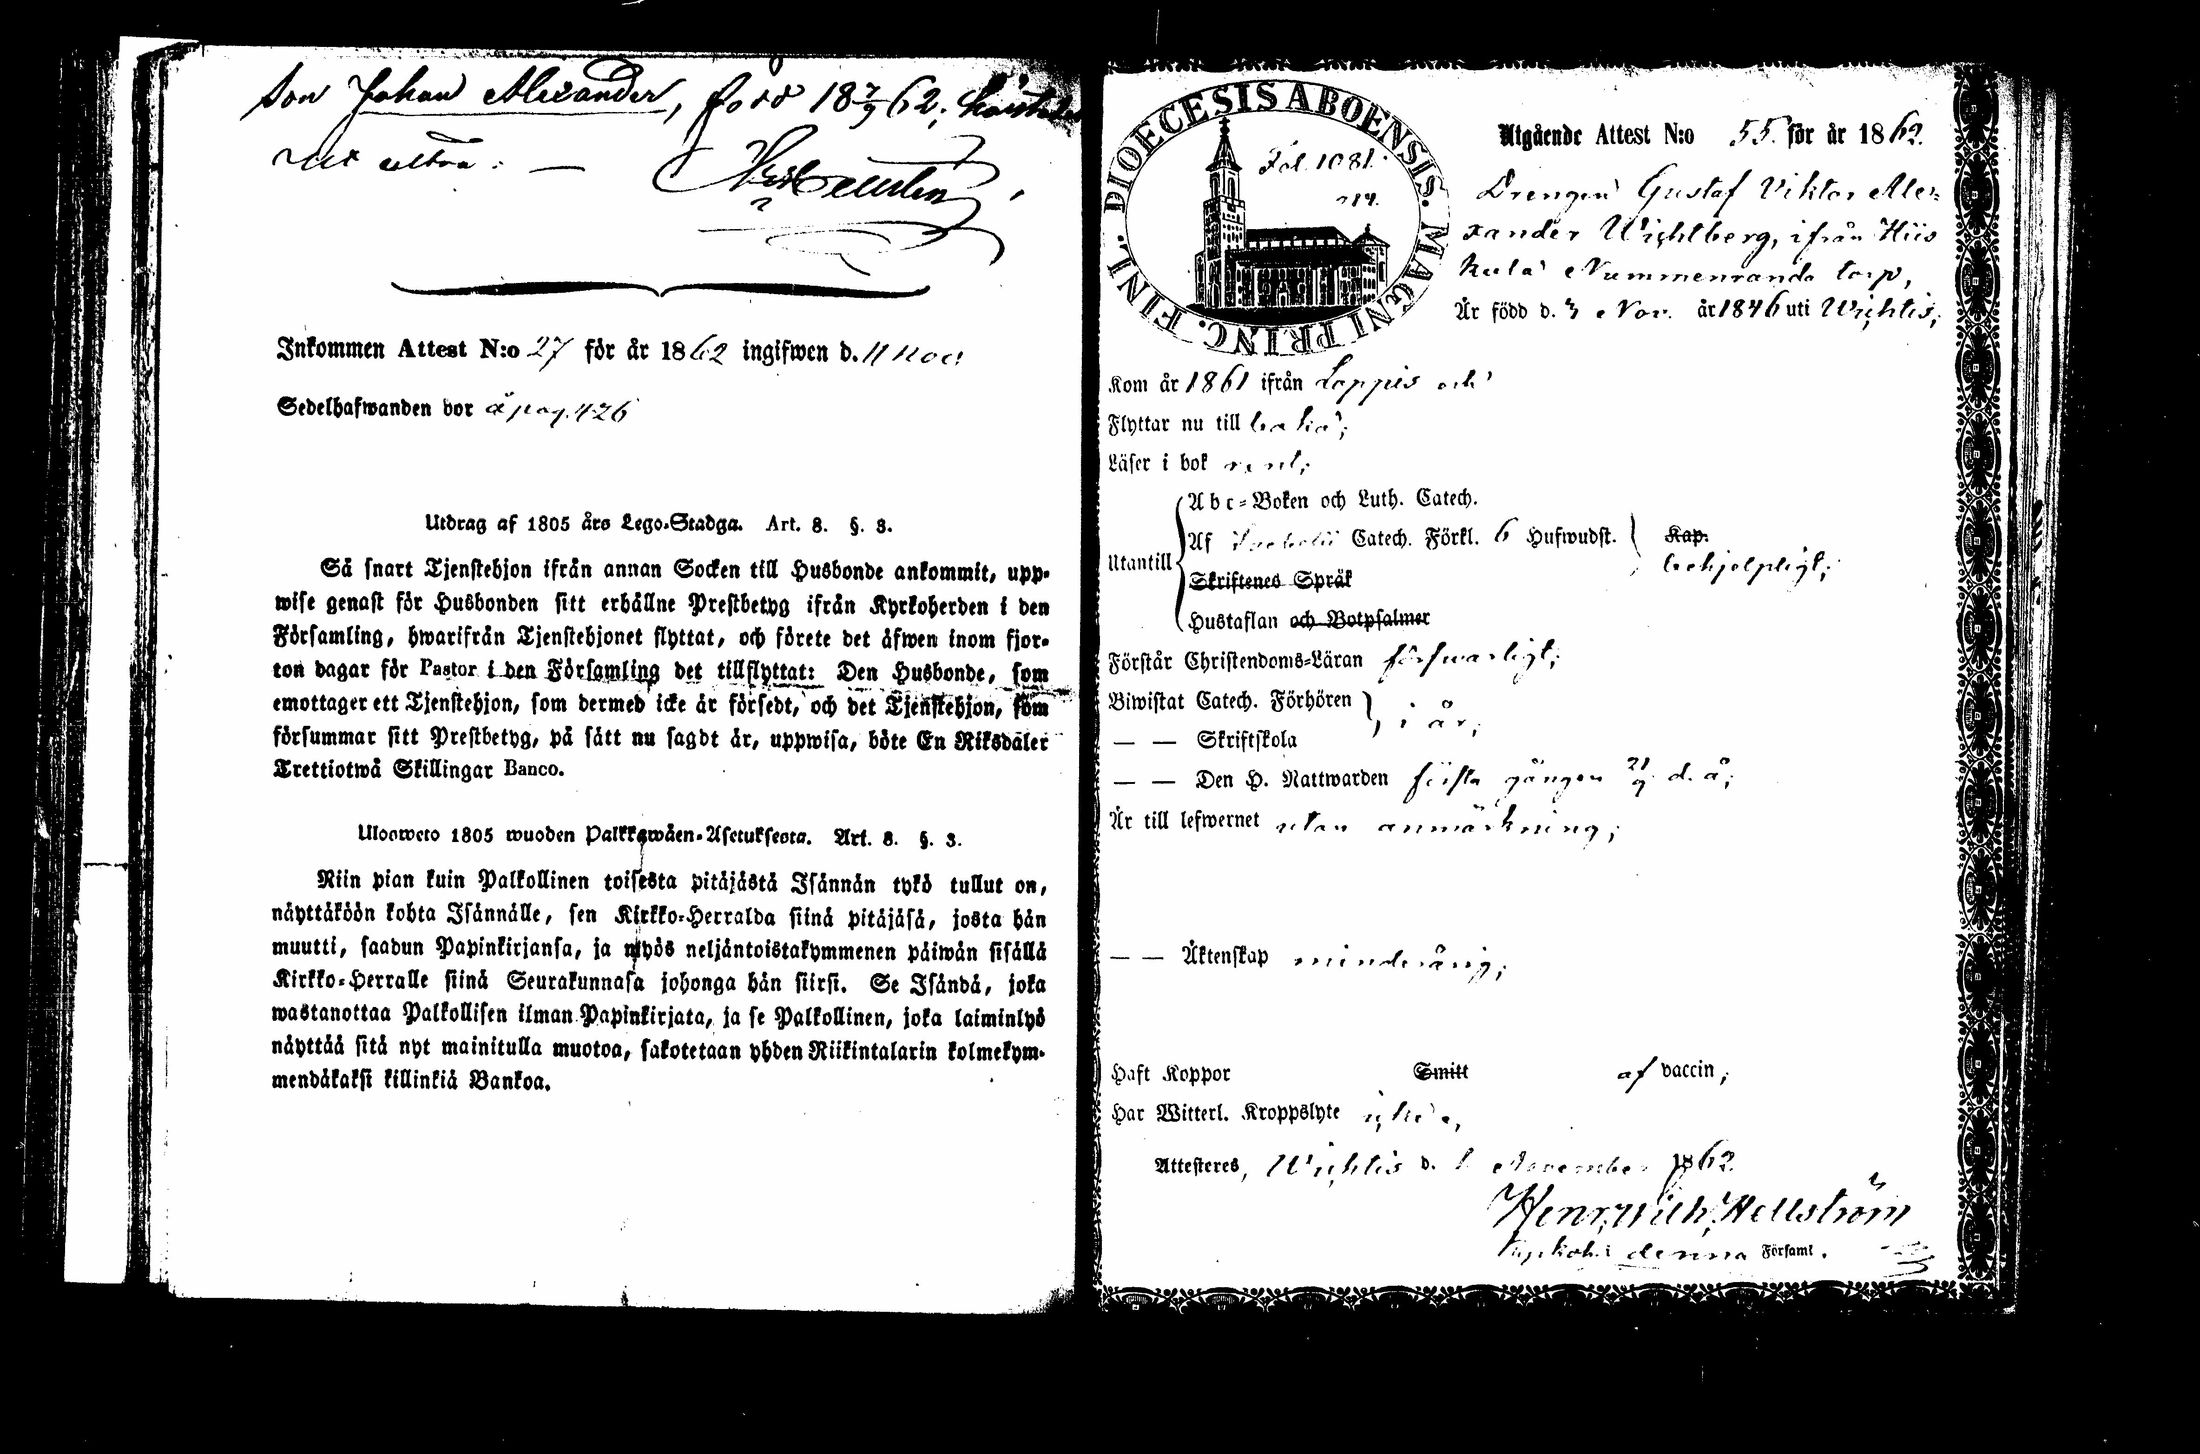 Son Johan Alexander, född 18 7/9 62;
ut ultra: —
Inkommen Attest N:o 27 för år 1862 ingifwen d. 11 Nov
Sedelhafwanden bor å pag. 426
Utdrag af 1805 års Lego-Stadga. Art. 8. §. 3.
Så snart Tjenstehjon ifrån annan Socken till Husbonde ankommit, upp-
wise genast för Husbonden sitt erhållne Prestbetyg ifrån Kyrkoherden i den
Församling, hwarifrån Tjenstehjonet flyttat, och förete det äfwen inom fjor-
ton dagar för Pastor i den Församling det tillflyttat: Den Husbonde, som
emottager ett Tjenstehjon, som dermed icke är försedt, och det Tjenstehjon, som
försummar sitt Prestbetyg, på sätt nu sagdt är, uppwisa, böte En Riksdaler
Trettiotwå Skillingar Banco.
Ulosweto 1805 wuoden Palkkawäen-Asetuksesta. Art. 8. §. 3.
Niin pian kuin Palkollinen toisesta pitäjästä Isännän tykö tullut on,
näyttäköön kohta Isännälle, sen Kirkko-Herralda siinä pitäjäsä, josta hän
muutti, saadun Papinkirjansa, ja myös neljäntoistakymmenen päiwän sisällä
Kirkko-Herralle siinä Seurakunnasa johonga hän siirsi. Se Isändä, joka
wastanottaa Palkollisen ilman Papinkirjata, ja se Palkollinen, joka laiminlyö
näyttää sitä nyt mainitulla muotoa, sakotetaan yhden Riikintalarin kolmekym-
mendäkaksi killinkiä Bankoa.
DIOECESIS ABOENSIS. MAGNI PRINC. FINL.
Fol. 1081.
Utgående Attest N:o 55. för år 1862.
Drengen Gustaf Viktor Alex-
xander Wichtberg, ifrån Hiis
kula Nummenranda torp,
Är född d. 3 Nov. år 1846 uti Wichtis;
Kom år 1861 ifrån Loppis och
Flyttar nu till
Läser i bok rent;
Abc-Boken och Luth. Catech.
Af Swebelii Catech. Förkl. 6 Hufwudst. Kap.
Utantill behjelpligt;
Skriftenes Språk
Hustaflan och Botpsalmer
Förstår Christendoms-Läran förswarligt;
Biwistat Catech. Förhören
i år;
— — Skriftskola
— — Den H. Nattwarden första gången 21/9 d. å;
Är till lefwernet utan anmärkning;
— — Äktenskap minderårig;
Haft Koppor Smitt af vaccin;
Har Witterl. Kroppslyte icke,
Attesteres, Wichtis d. November 1862.
Henr. Wilh. Hellström
Kyrkoh. i denna Församl.